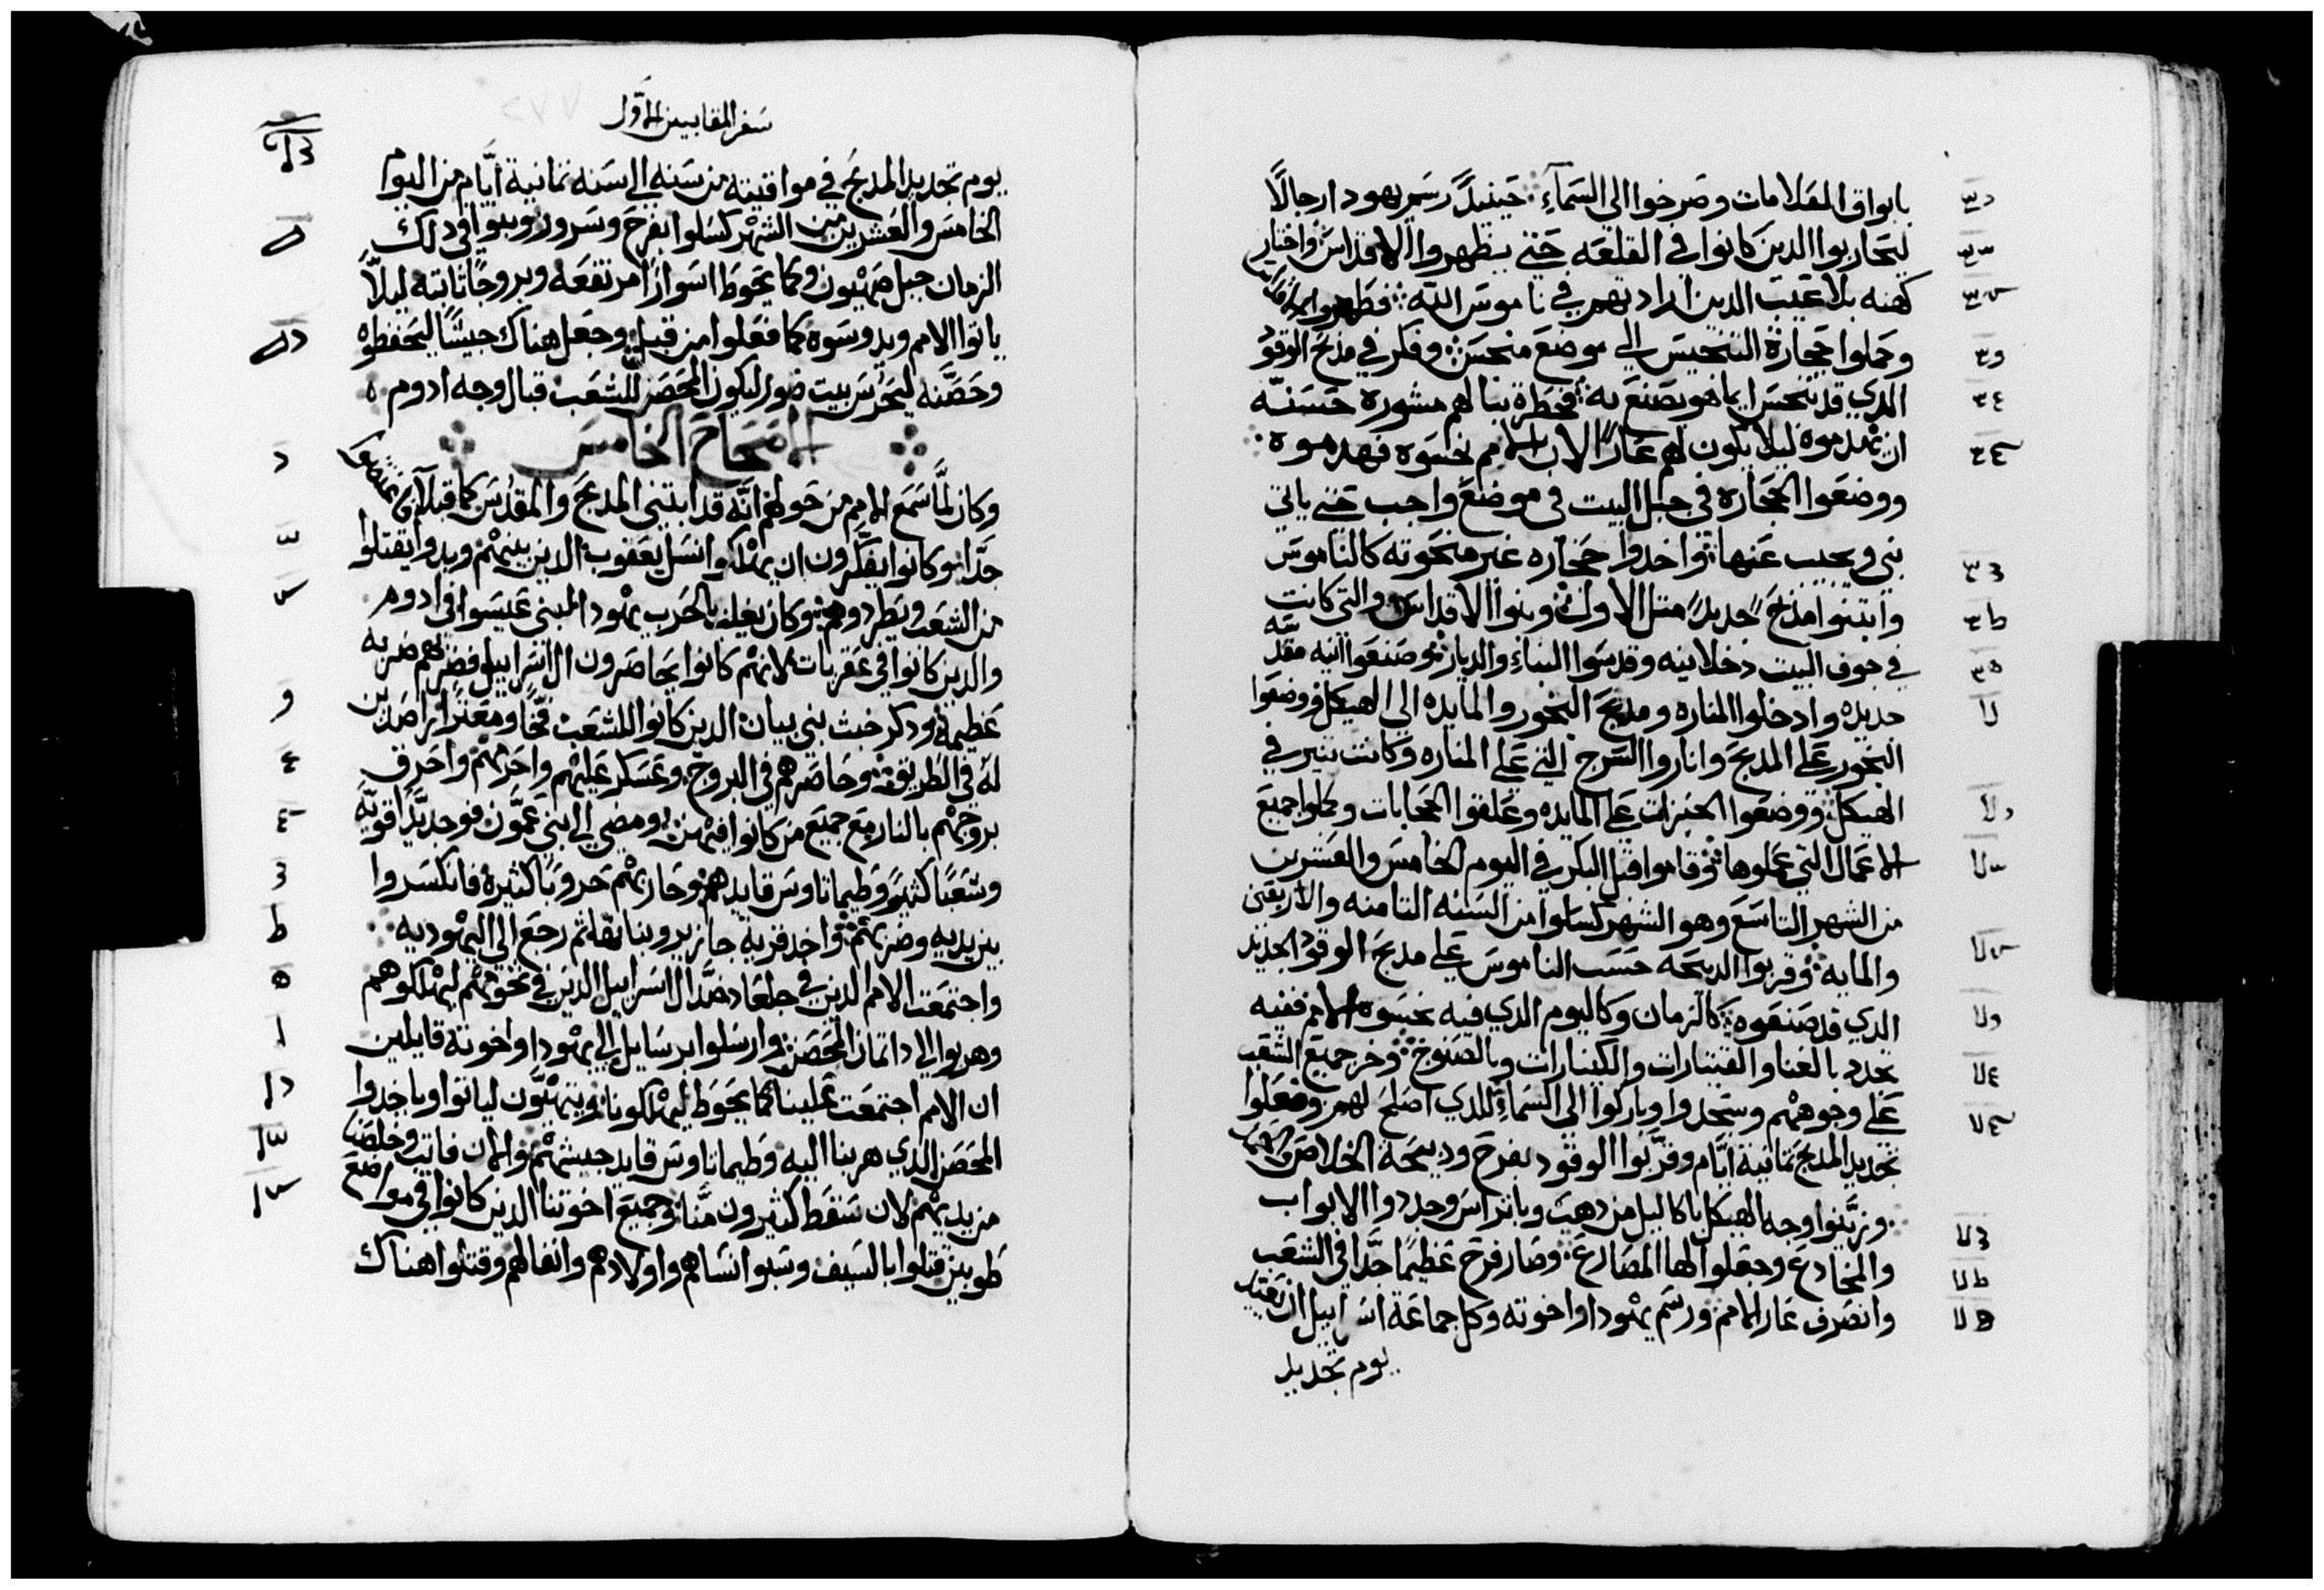 بابواق العلامات وصرخوا الى السمآءِ حينيدً رسم يهودا رجالاً
ليحاربوا الدين كانوا في القلعه حتي يطهروا الاقداس واختار
كهنه بلا عيب الدين ارادتهم في ناموس الله فطهروا الاقداس
وحملوا حجارة التنجيس الي موضع منجس وفكر في مدبح الوقود
الدي قد تنجس ايما هو يصنع به فخطرة ببالهم مشورة حسنه
ان يهدموه ليلا يكون لهم عاراً لان الامم نجسوه فهدموه
ووضعوا الحجاره في جبل البيت في موضع واجب حتي ياتي
نبي ويجيب عنها واخدوا حجاره غير منحوته كالناموس
وابتنوا مدبح جديداً متل الاول وبنوا الاقداس والتي كانت
في جوف البيت دخلانيه وقدسوا البناء والديار وصنعوا انيه مقدسه
جديده وادخلوا المناره ومدبح البخور والمايده الى الهيكل ووضعوا
البخور علي المدبح واناروا السرج التي علي المناره وكانت تنير في
الهيكل ووضعوا الخبزات علي المايده وعلقوا الحجابات وكملوا جميع
الاعمال التي عملوها وقاموا قبل البكر في اليوم الخامس والعشرين
من الشهر التاسع وهو الشهر كسلوا من السنه التامنه والاربعين
والمايه وقربوا الدبيحه حسب الناموس علي مدبح الوقود الجديد
الدي قد صنعوه كالزمان وكاليوم الدي فيه نجسوه الامم ففيه
تجدد بالغنا والقيتارات والكينارات وبالصنوج وخر جميع الشعب
علي وجوههم وسجدوا وباركوا الى السماءِ للدي اصلح لهم وفعلوا
تجديد المدبح تمانية ايام وقربوا الوقود بفرح ودبيحة الخلاص
وزينوا وجه الهيكل باكاليل من دهب وباتراس وجددوا الابواب
والمخادع وجعلوا لها المصارع وصار فرح عظيماً جداً في الشعب
وانصرف عار الامم ورسم يهودا واخوته وكل جماعة اسرابيل ان
يوم تجديد
سفر المقابيين الاول
يوم تجديد المدبح في مواقيته من سنه الي سنه تمانية ايام من اليوم
الخامس والعشرين من الشهر كسلوا بفرح وسرور وبنوا في دلك
الزمان جبل صهيون وكما يحوط اسواراً مرتفعه وبروجاً تابته ليلاً
ياتوا الامم ويدوسوه كما فعلوا من قبل وجعل هناك جيشاً ليحفظوه
وحصنه ليحرس بيت صور ليكون المحصن للشعب قبال وجه ادوم
الاصحاح الخامس
وكان لما سمع الامم من حولهم انه قد ابتني المدبح والمقدس كما قبلاً
جداً وكانوا يفكرون ان يهلكوا نسل يعقوب الدين بينهم وبدوا يقتلوا
من الشعب ويطردوهم وكان يغلب بالحرب يهودا لبني عيسوا في ادوم
والدين كانوا في عقربات لانهم كانوا يحاصرون ال اسرابيل فضربهم ضربه
عظيمه ودكر خبث بني بيان الدين كانوا للشعب فخاً ومعتراً راصدين
له في الطريق وحاصرهم في البروج وعسكر عليهم واحرمهم واحرق
بروجهم بالنار مع جميع من كانوا فيهن ومضي الي بني عمون فوجد يداً قويه
وشعباً كثيراً وطيماتاوس قايدهم وحاربهم حروباً كثيره فانكسروا
بين يديه وضربهم واخد قريه جازير وبناتها تم رجع الي اليهوديه
واجتمعت الامم الدين في جلعاد ضد ال اسرابيل الدين في تخومهم ليهلكوهم
وهربوا الى داتمان المحصن وارسلوا برسايل الي يهودا واخوته قايلين
ان الامم اجتمعت علينا كما يحوط ليهلكونا ويتهيون لياتوا وياخدوا
المحصن الدي هربنا اليه وطيماتاوس قايد جيشهم والان فايت وخلصنا
من يديهم لان سقط كثيرون منا وجميع اخوتنا الدين كانوا في مواضع
طوبين قتلوا بالسيف وسبوا نساهم واولادهم واتقالهم وقتلوا هناك